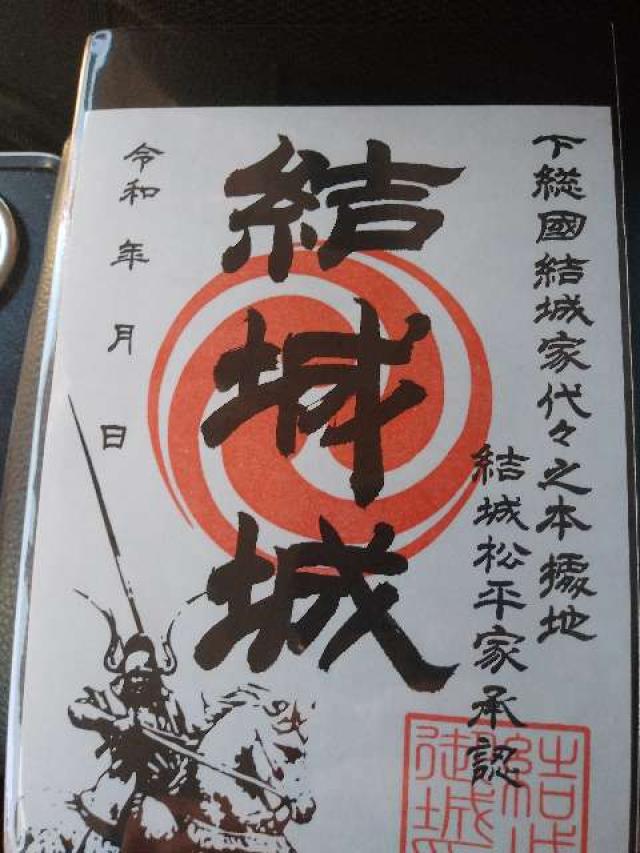 下総國結城家代々之本據地
結城松平家承認
結城城
令和 年 月 日
結城
御城印